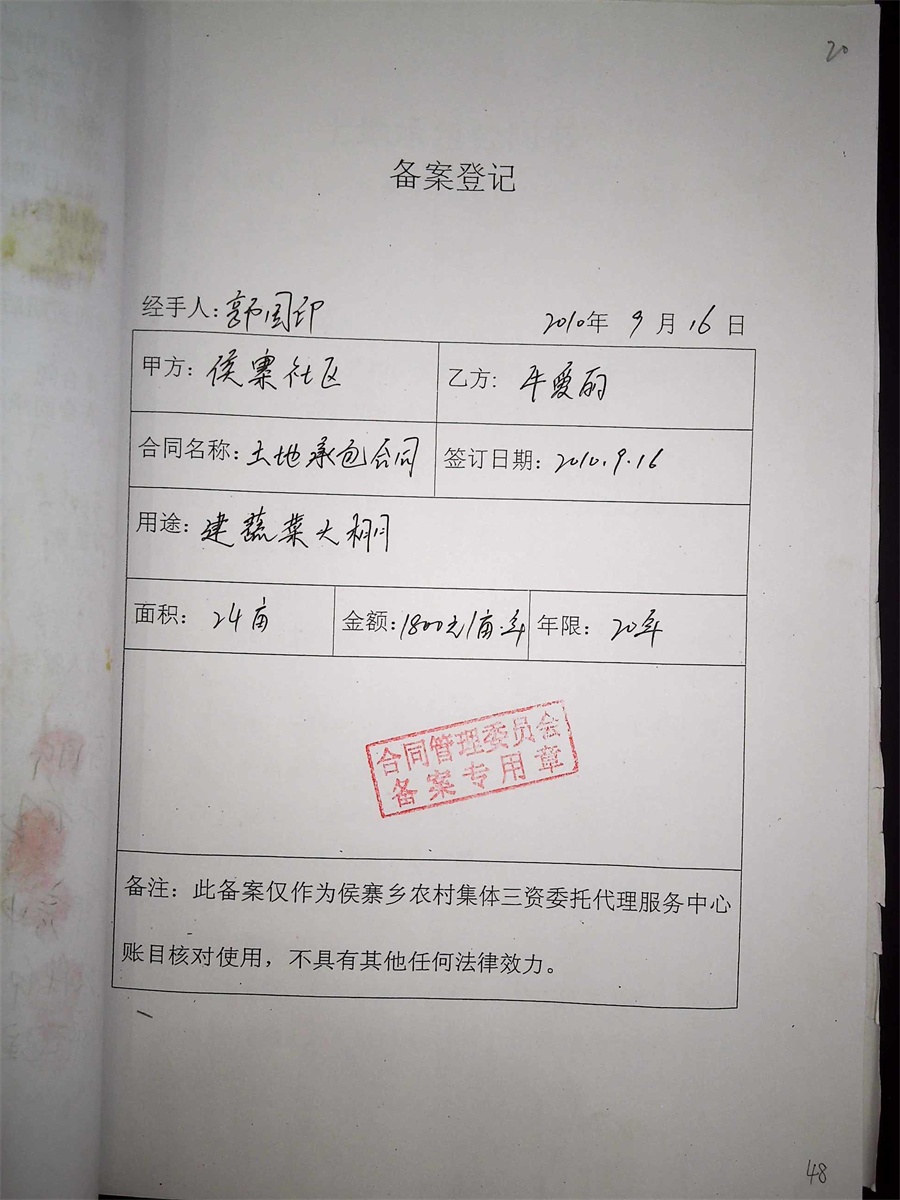 20
备案登记
经手人：郭国印 2010年 9 月 16 日
甲方：侯寨社区 乙方：牛爱丽
合同名称：土地承包合同 签订日期：2010.9.16
用途：建蔬菜大棚
面积：24亩 金额：1800元/亩·年 年限：20年
合同管理委员会
备案专用章
备注：此备案仅作为侯寨乡农村集体三资委托代理服务中心
账目核对使用，不具有其他任何法律效力。
48